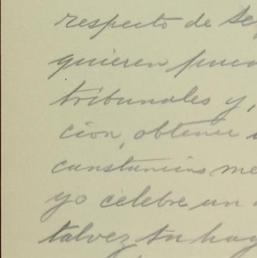 respecto de se
quieren pued
tribunales y,
cion, obtener
cunstancias me
yo celebre un
talvez tu hay